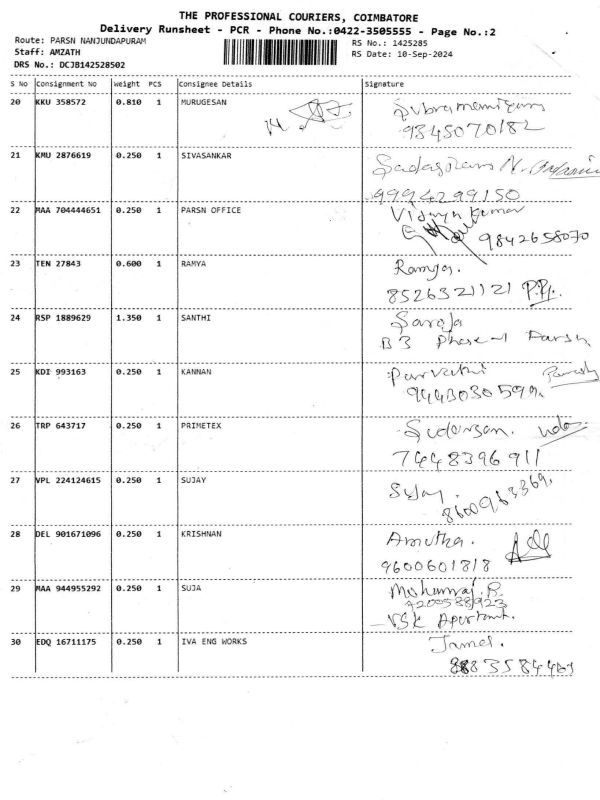 THE PROFESSIONAL COURIERS, COIMBATORE
Delivery Runsheet - PCR - Phone No.:0422-3505555 - Page No.:2
Route: PARSN NANJUNDAPURAM
RS No.: 1425285
Staff: AMZATH
RS Date: 10-Sep-2024
DRS No.: DCJB142528502
S No Consignment No Weight PCS Consignee Details Signature
20 KKU 358572 0.810 1 MURUGESAN
Subramaniyam
9345070182
21 KMU 2876619 0.250 1 SIVASANKAR
N.
9994299150
22 MAA 704444651 0.250 1 PARSN OFFICE Vidhya Kumar
9842658070
23 TEN 27843 0.600 1 RAMYA Ramya.
8526321121
24 RSP 1889629 1.350 1 SANTHI Saroja
B3 Phase-1 Parsn
25 KDI 993163 0.250 1 KANNAN Parvathi
9443030599.
26 TRP 643717 0.250 1 PRIMETEX Sudarsan.
7448396911
27 VPL 224124615 0.250 1 SUJAY Sujay.
8600963369.
28 DEL 901671096 0.250 1 KRISHNAN Amutha.
9600601818
29 MAA 944955292 0.250 1 SUJA Mohanraj.R.
7200588923
VSK Apartment.
30 EDQ 16711175 0.250 1 IVA ENG WORKS James.